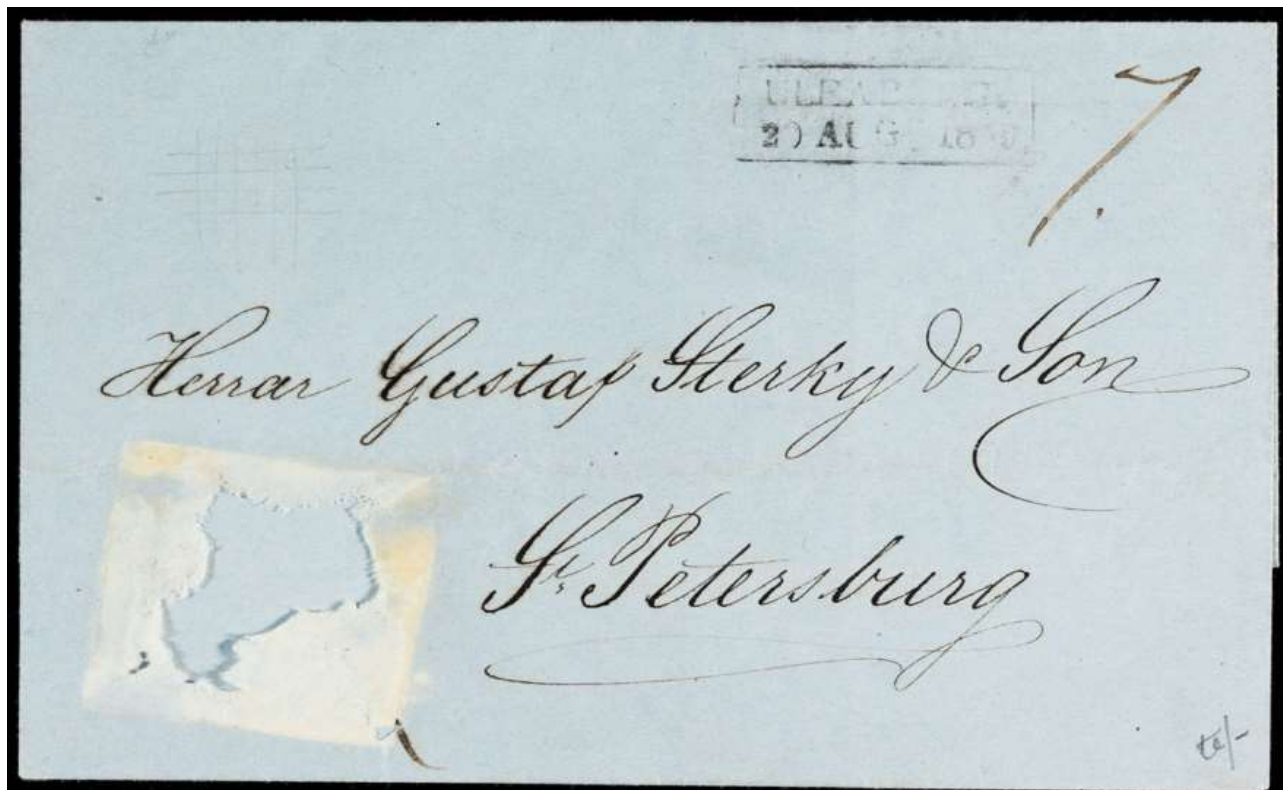 ULEABORG.
20 AUG. 18
7.
Herrar Gustaf Sterky & Son
St. Petersburg